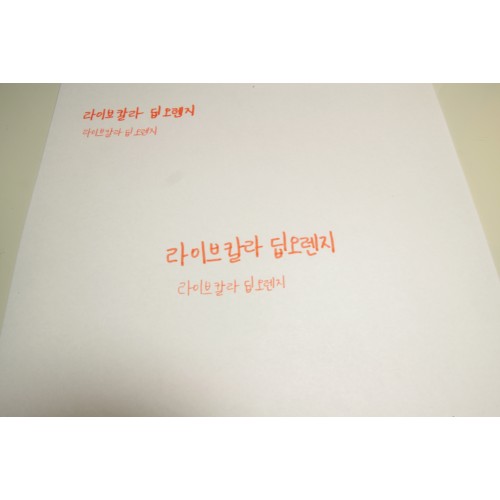 라이브칼라 딥오렌지
라이브칼라 딥오렌지
라이브칼라 딥오렌지
라이브칼라 딥오렌지